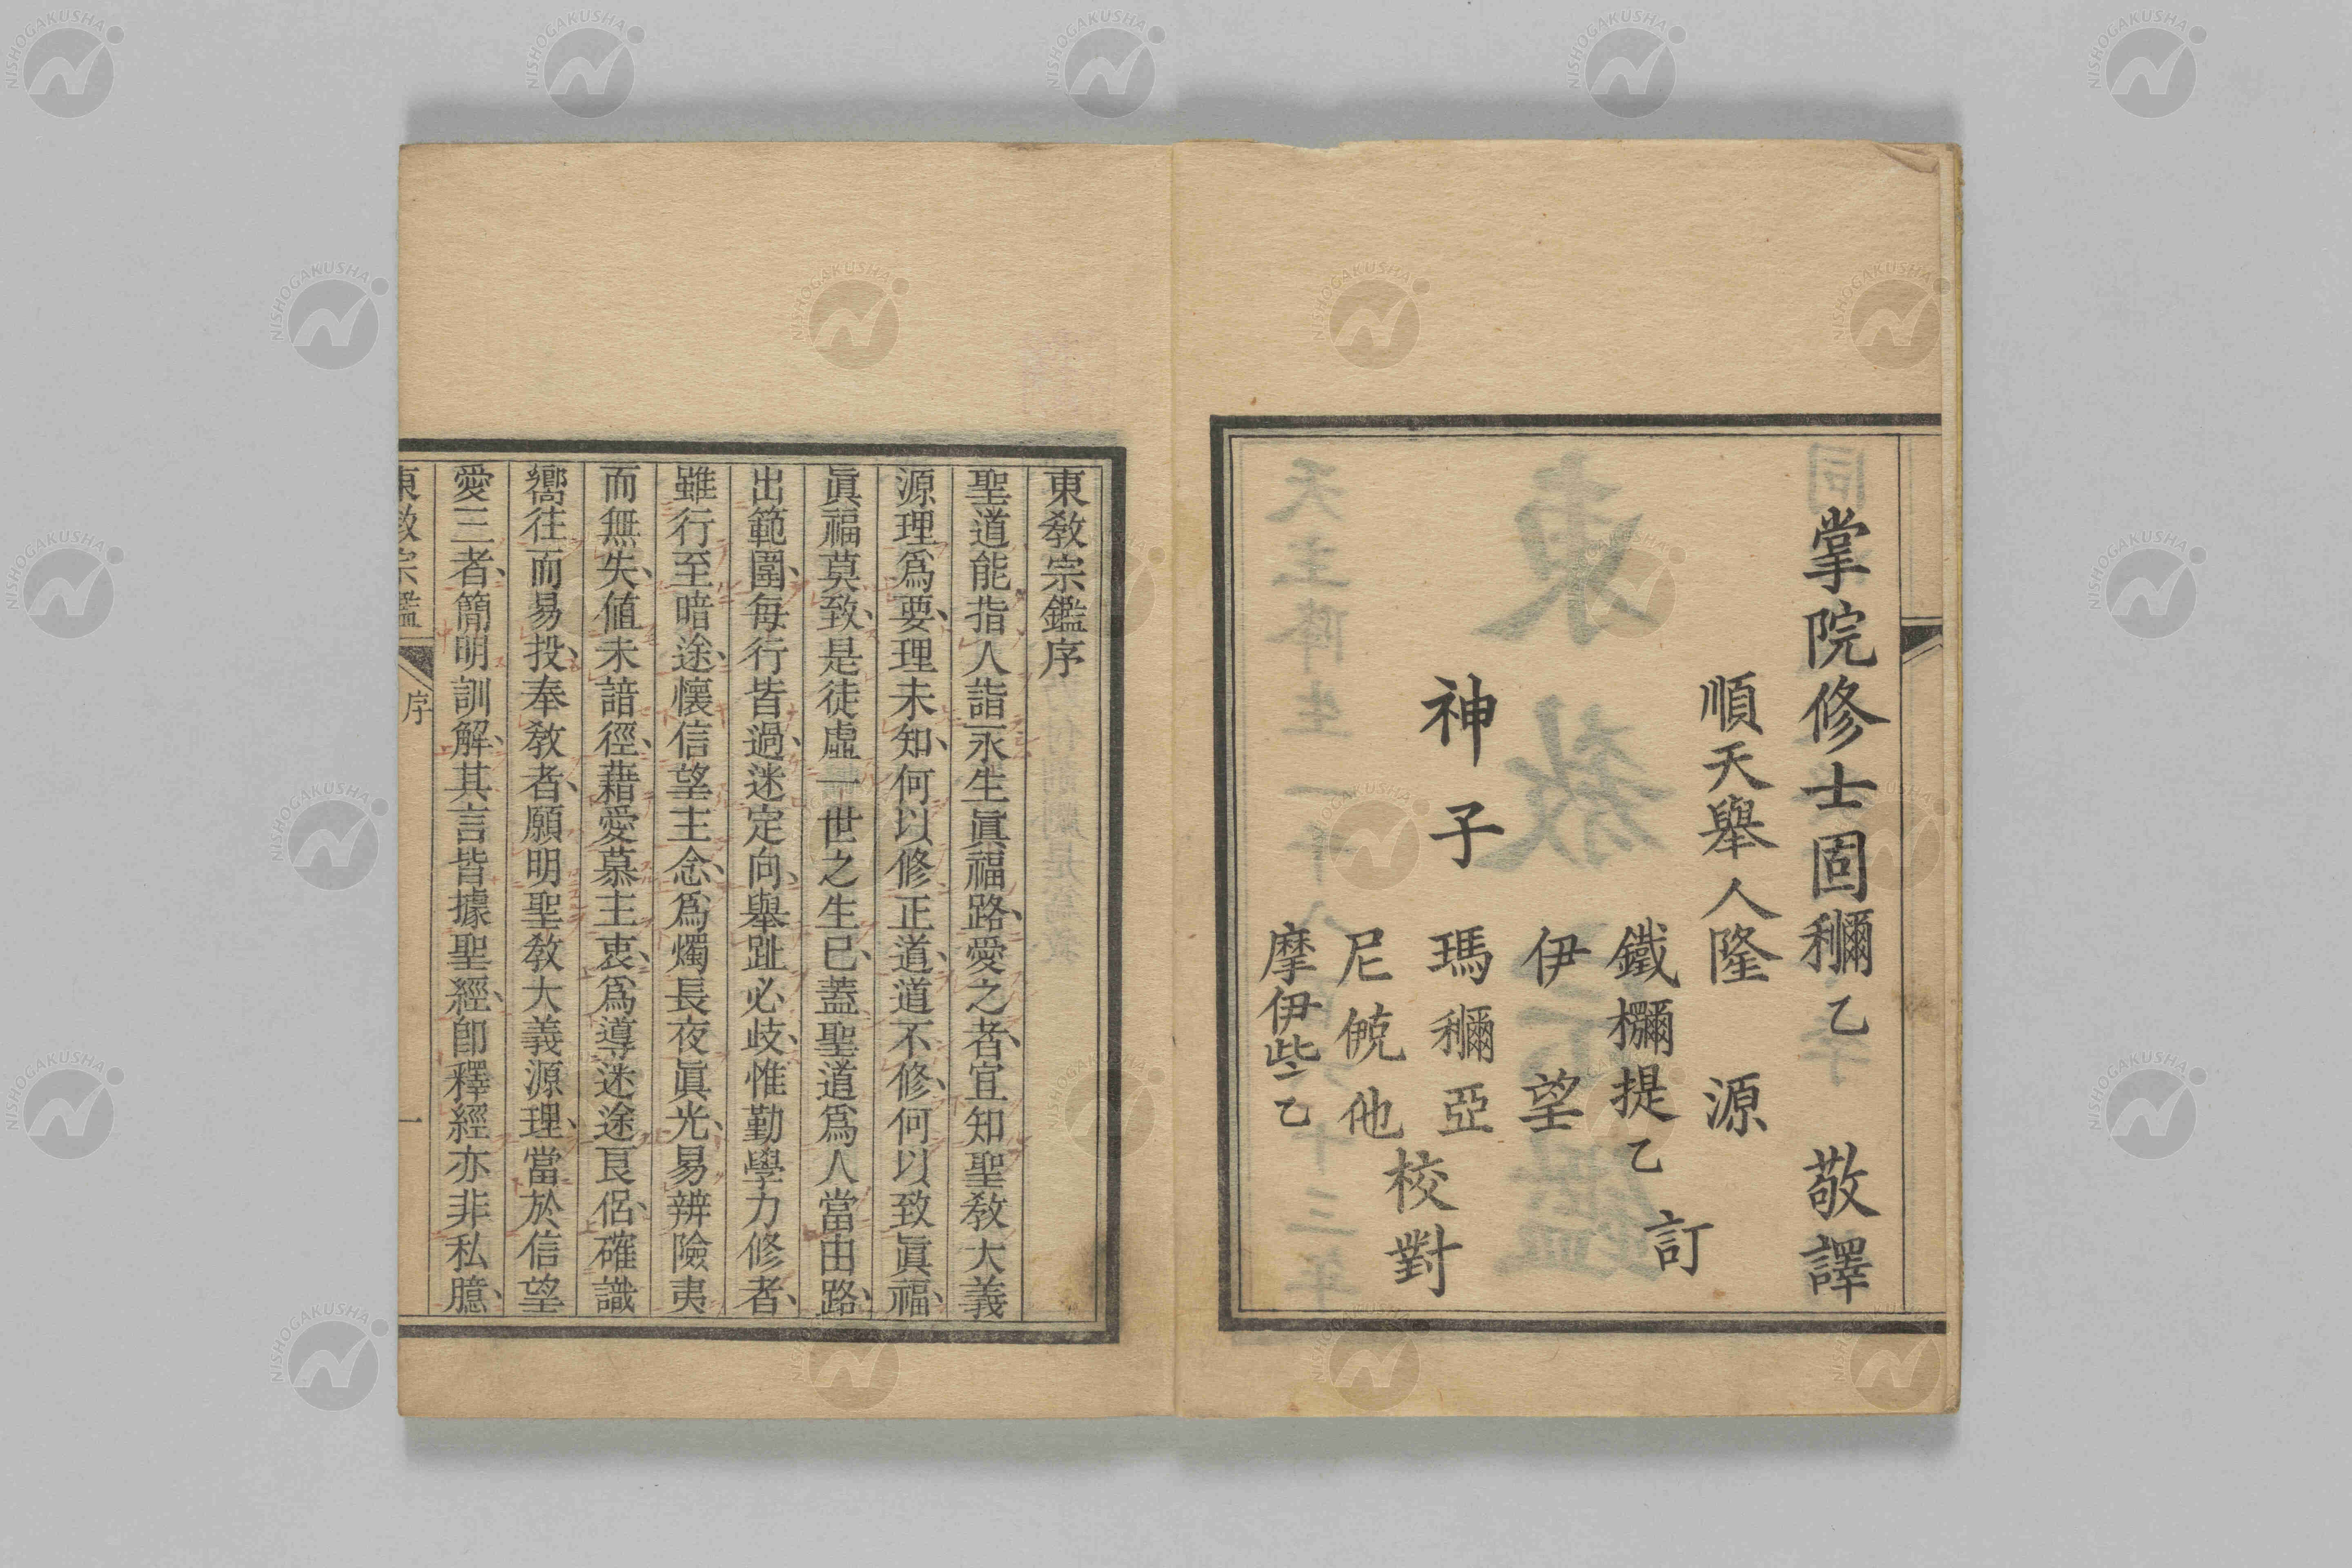 掌院修士固𥠖乙敬譯
順天舉人隆源
鐵𣟴提乙訂
伊望
神子瑪𥠖亞校對
尼㑆他
摩伊些乙
東敎宗鑑序
聖道能指人詣永生眞福路、愛之者、宜知聖敎大義
源理爲要、要理未知、何以修正道、道不修、何以致眞福、
眞福莫致、是徒虛一世之生已、蓋聖道爲人當由路、
出範圍、每行皆過、迷定向、舉趾必歧、惟勤學力修者、
雖行至暗途、懷信望主念、爲燭長夜眞光、易辨險夷
而無失、値未諳徑、藉愛慕主衷、爲導迷途良侶、確識
嚮往而易投、奉敎者、願明聖敎大義源理、當於信望
愛三者、簡明訓解、其言皆據聖經、卽釋經亦非私臆、
東敎宗鑑 序 一
NISHOGAKUSHA